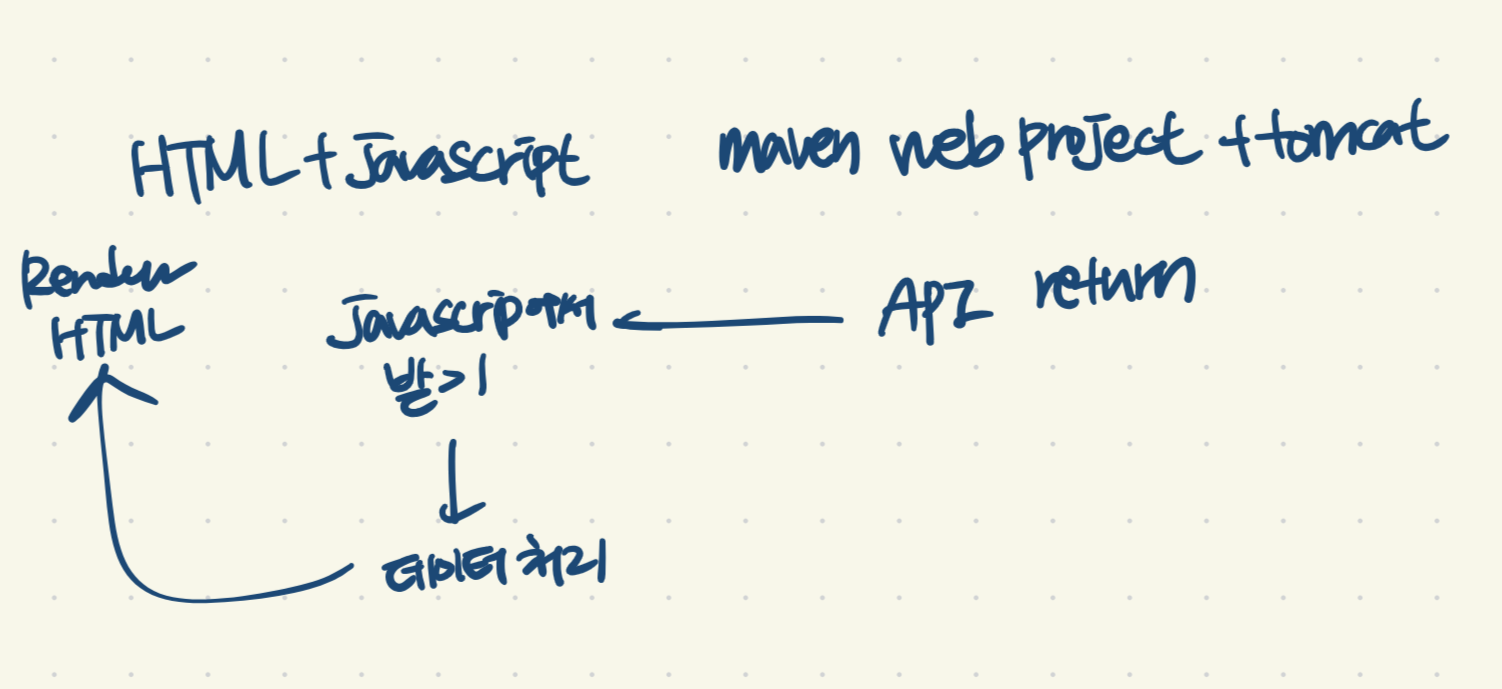 HTML + javascript
maven web project + tomcat
Render
HTML
javascript에서
받기
API return
데이터 처리